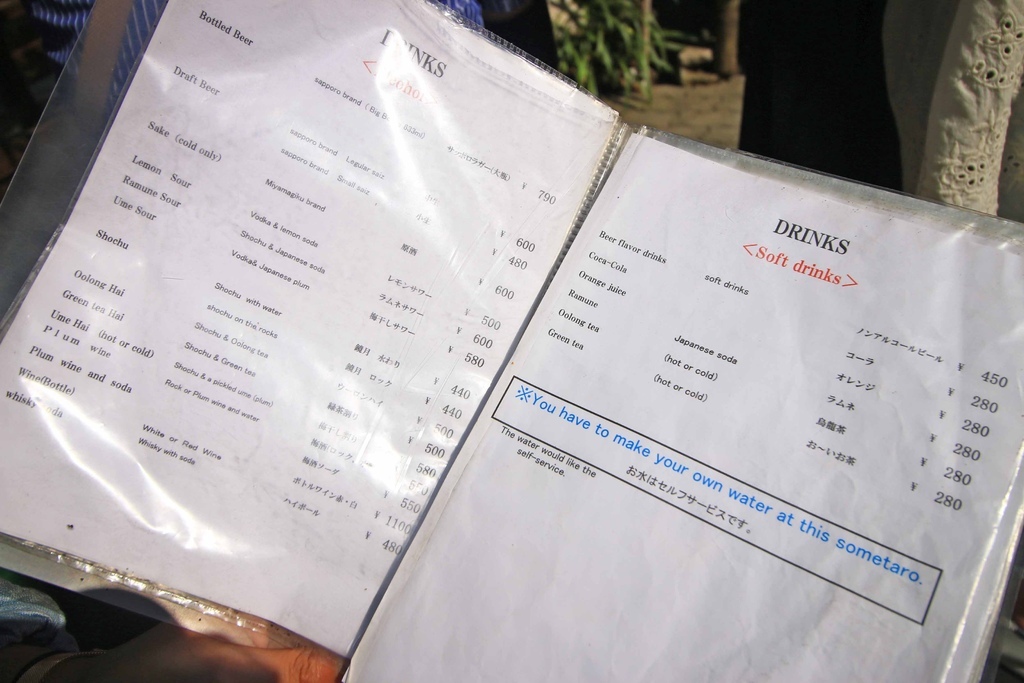 DRINKS
Bottled Beer sapporo brand サッポロラガー(大瓶) ¥ 790
Draft Beer sapporo brand Legular saiz ¥ 600
sapporo brand Small saiz ¥ 480
Sake (cold only) Miyamagiku brand 原酒 ¥ 600
Lemon Sour Vodka & lemon soda レモンサワー ¥ 500
Ramune Sour Shochu & Japanese soda ラムネサワー ¥ 600
Ume Sour Vodka& Japanese plum 梅干しサワー ¥ 580
Shochu Shochu with water 鏡月 水わり ¥ 440
shochu on the rocks 鏡月 ロック ¥ 440
Oolong Hai Shochu & Oolong tea ウーロンハイ ¥ 500
Green tea Hai Shochu & Green tea 緑茶割り ¥ 500
Ume Hai (hot or cold) Shochu & a pickled ume (plum) ¥ 580
Plum wine Rock or Plum wine and water 梅酒(ロック ¥ 550
Plum wine and soda 梅酒ソーダ ¥ 550
Wine(Bottle) White or Red Wine ボトルワイン赤・白 ¥ 1100
whisky soda Whisky with soda ハイボール ¥ 480
DRINKS
<Soft drinks>
Beer flavor drinks soft drinks ノンアルコールビール ¥ 450
Coca-Cola コーラ ¥ 280
Orange juice オレンジ ¥ 280
Ramune Japanese soda ラムネ ¥ 280
Oolong tea (hot or cold) 烏龍茶 ¥ 280
Green tea (hot or cold) お〜いお茶 ¥ 280
※You have to make your own water at this sometaro.
お水はセルフサービスです。
The water would like the
self-service.